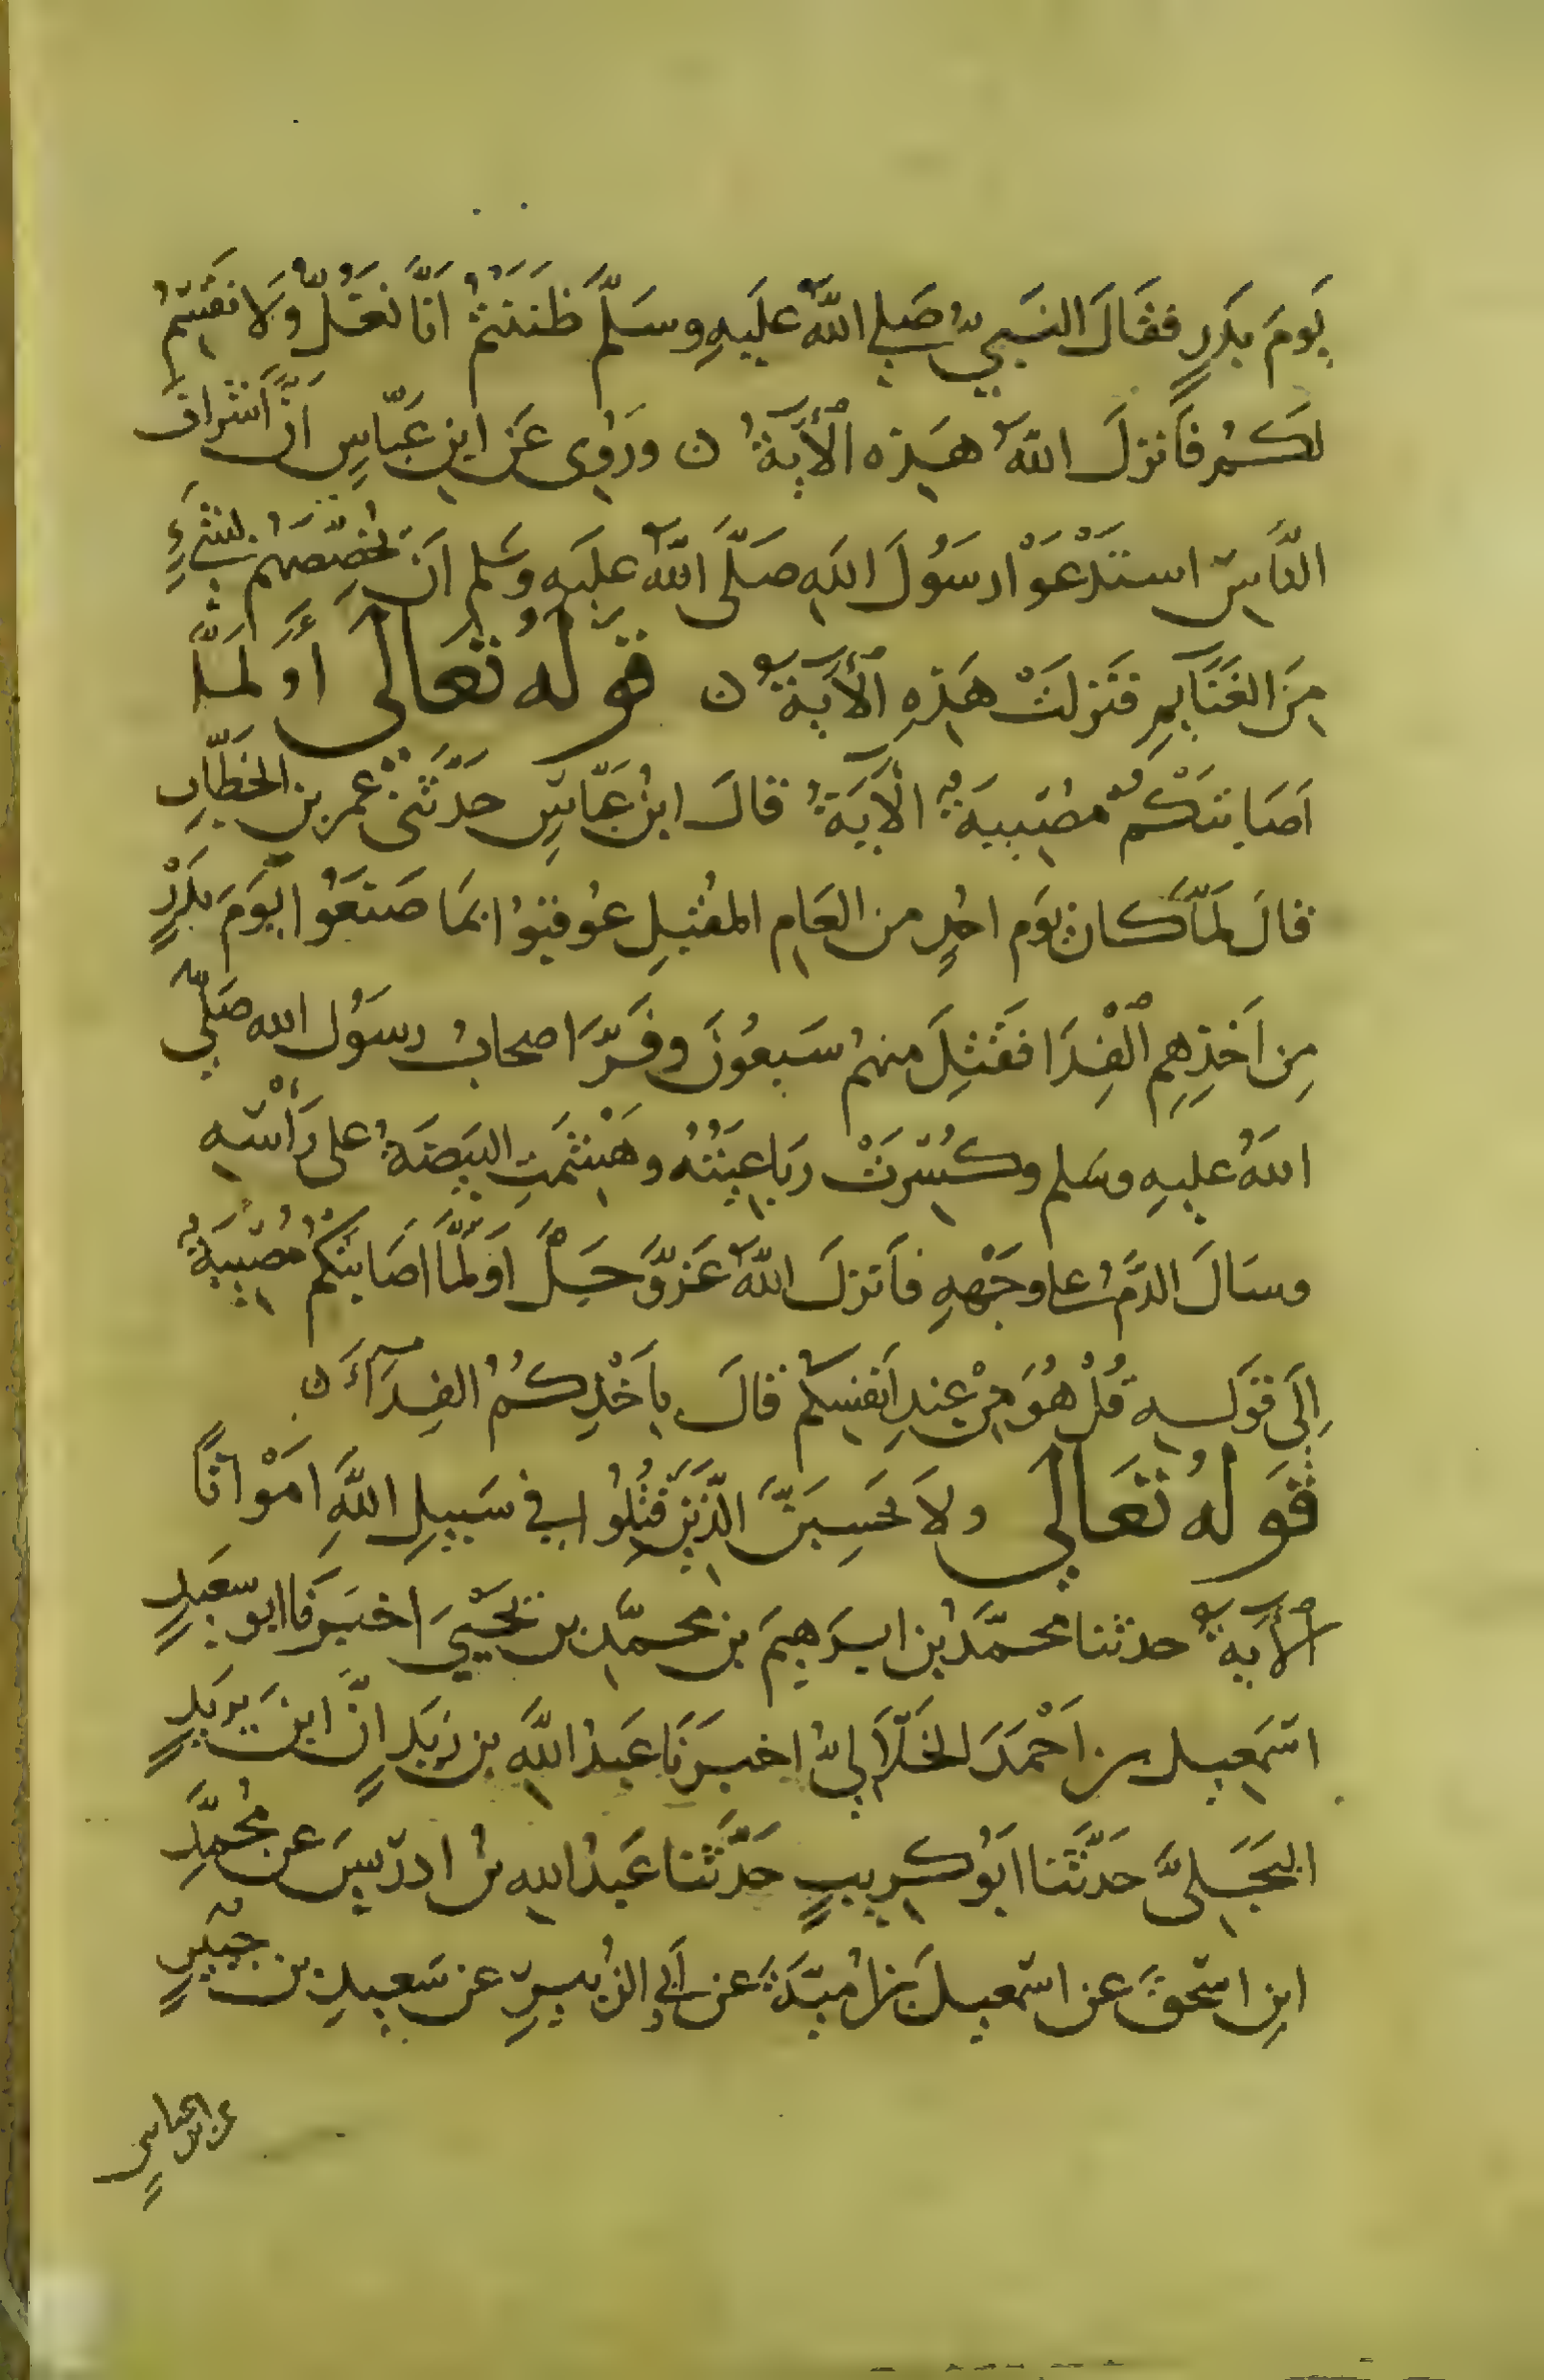 يَومَ بَدرٍ فقَالَ النَّبيُّ صَلى اللهُ عَلَيهِ وسَلَّمَ ظَنَنتُمْ اَنَّا نَغُلُّ وَلَا نَقْسِمُ
لَكُم فَاَنزلَ اللهُ هَذِه الْآيَةُ ن ورَوٰى عَن ابنِ عَبَّاسٍ اَنَّ أَشْرافَ
النَّاسِ استَدْعَوْا رسَوُلَ اللهِ صَلَّى اللهُ عَلَيهِ وسَلم اَن يَخُصَّصَهُم بشَيءٍ
مِنَ الغَنَايمِ فَنَزلَتْ هَذِهِ الْآيَةُ ن قوله تعالى أَوَلَمَّا
اَصَابَتَكُمْ مُصِيبَةٌ الْآيَةُ قالَ ابنُ عَبَّاسٍ حَدَّثَنى عُمر بن الخَطَّابِ
قالَ لَمَّا كان يَوم احُدٍ من العَامِ المقُبلِ عوُقبوُا بمَا صَنَعَوُا يَوَمَ بَدْرٍ
مِن اَخَذِهِم الْفِدَا فَقُتِلَ منهمُ سَبعُونَ وفَرَّ اصحابُ رسَوُل الله صَلّى
اللهُ عليهِ وسَلم وكُسِرَتْ رَباعِيَتُهُ وهَشمَتِ البَيضَةُ على رَأْسِهِ
وسَالَ الدَّمُ على وجَهْهِ فاَنزلَ اللهُ عَزوَّجَلَّ اَوَلَمَّا اصَابَتكُم مُصيبَةٌ
اِلَى قَولِهِ قُلْ هُوَ مِنْ عِندِ اَنفسِكُمْ قالَ باَخْذِكُمُ الفِدَآءَ ن
قَوله تعَالى ولا تحَسِبَنَّ الَّذَينَ قُتِلُوا في سَبيلِ اللهِ امَوْاتًا
الْآيةُ حدثنا محمَّدُ بن ابرَهِيمَ بن محمَّدِ بن يَحَيْيَ اخبَرَنَا ابو سعَيدٍ
اسْمَعِيل بن اَحْمَدَ الخَلَّاَلِيُّ اخبَرَنَا عَبدُ اللهِ بن زَيَدٍ انَّ ابنَ يزيَدٍ
البَجَليَّ حدَثَّنا ابَوُ كرِيبٍ حَدَّثَنا عَبدُ اللهِ بنُ ادرَيسَ عن مُحمَّدِ
ابنِ اسْحَقَ عن اسْمعيلَ بَن اُميَّةَ عن اَبي الزُبيرِ عن سَعيدِ بن جبُيَرٍ
عن ابن عباسٍ